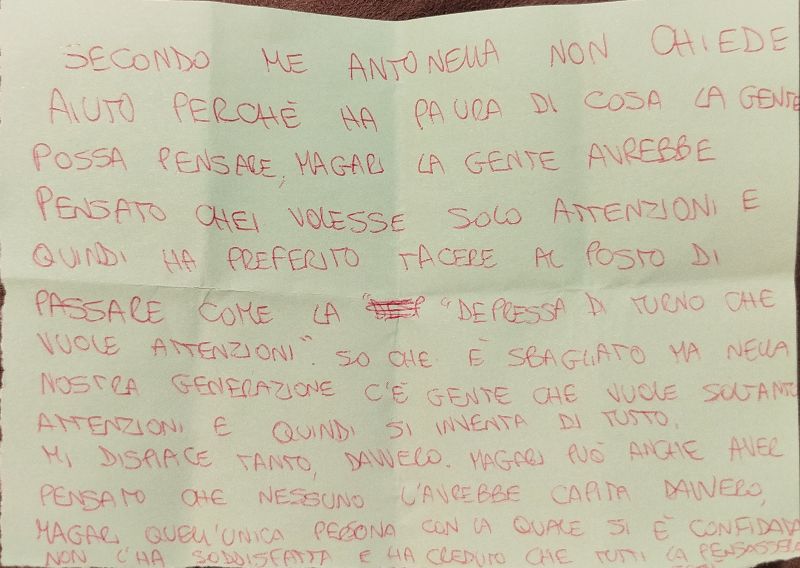 SECONDO ME ANTONELLA NON CHIEDE
AIUTO PERCHÈ HA PAURA DI COSA LA GENTE
POSSA PENSARE, MAGARI LA GENTE AVREBBE
PENSATO CHEI VOLESSE SOLO ATTENZIONI E
QUINDI HA PREFERITO TACERE AL POSTO DI
PASSARE COME LA " "DEPRESSA DI TURNO CHE
VUOLE ATTENZIONI". SO CHE È SBAGLIATO MA NELLA
NOSTRA GENERAZIONE C'È GENTE CHE VUOLE SOLTANTO
ATTENZIONI E QUINDI SI INVENTA DI TUTTO.
MI DISPIACE TANTO, DAVVERO. MAGARI PUÒ ANCHE AVER
PENSATO CHE NESSUNO L'AVREBBE CAPITA DAVVERO,
MAGARI QUELL'UNICA PERSONA CON LA QUALE SI È CONFIDATA
NON L'HA SODDISFATTA E HA CREDUTO CHE TUTTI LA PENSASSERO